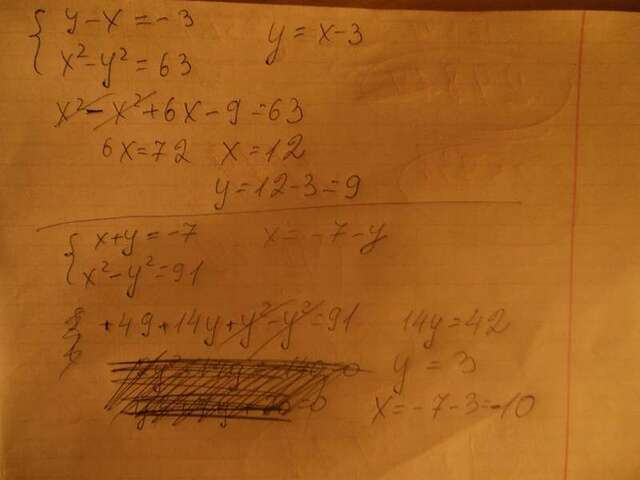 y-x=-3 y=x-3
x²-y²=63
x²-x²+6x-9=63
6x=72 x=12
y=12-3=9
x+y=-7 x=-7-y
x²-y²=91
+49+14y+y²-y²=91 14y=42
y=3
x=-7-3=-10